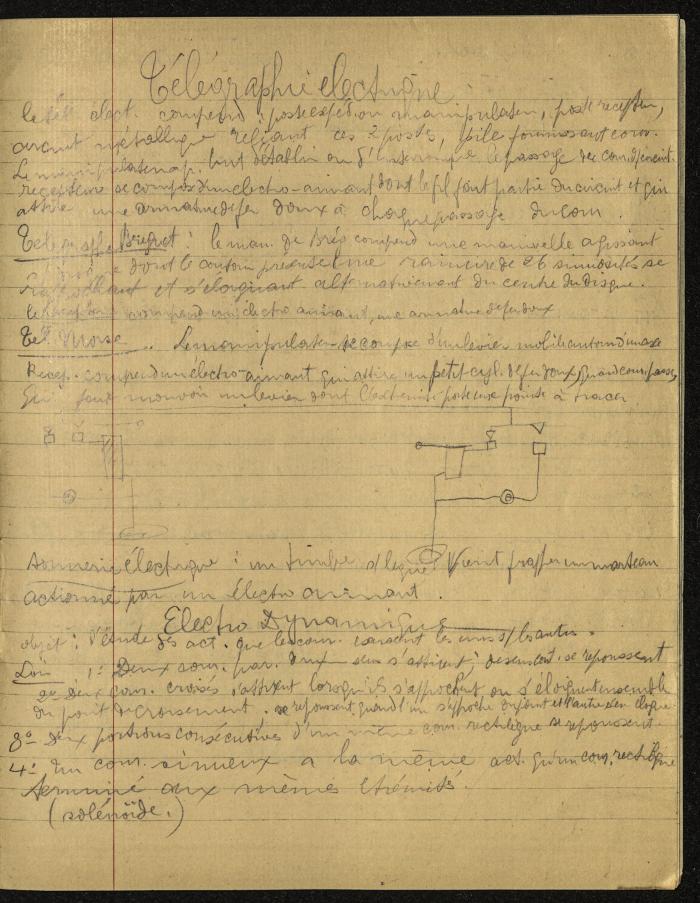 Télégraphie électrique
le tél. élect. comprend : poste expédition manipulateur, poste récepteur,
circuit métallique reliant ces 2 postes, pile fournissant cour.
Le manipulateur a p. but d'établir ou d'interrompre le passage du cour.
récepteur se compose d'un electro-aimant dont le fil fait partie du circuit et qui
attire une armature de fer doux à chaque passage du cour.
Télégraphe Bréguet : le man. de Brég comprend une manivelle agissant
dont le contour présente une rainure de 26 sinuosités se
et s'éloignant alternativement du centre du disque.
le récepteur comprend un électro aimant, une armature de fer doux
Tél. Morse .. Le manipulateur se compose d'un levier mobile autour d'un axe
Récep. comprend un électro-aimant qui attire un petit cyl. de fer doux, quand cour. passe,
qui fait mouvoir un levier dont l'extrémité porte une pointe à tracer
Sonnerie électrique : un timbre s/lequel vient frapper un marteau
actionné par un électro aimant.
Electro Dynamique
objet : l'étude des act. que les cour. exercent les uns s/les autres.
Lois 1º Deux cour. par. de même sens s'attirent ; de sens cont. se repoussent
2º deux cour. croisés s'attirent lorsqu'ils s'approchent ou s'éloignent ensemble
du point de croisement. se repoussent quand l'un s'approche du point et l'autre s'en éloigne
3º deux portions consécutives d'un même cour. rectiligne se repoussent.
4º Un cour. sinueux a la même act. qu'un cour. rectiligne
terminé aux mêmes extrémités.
(solénoïde.)